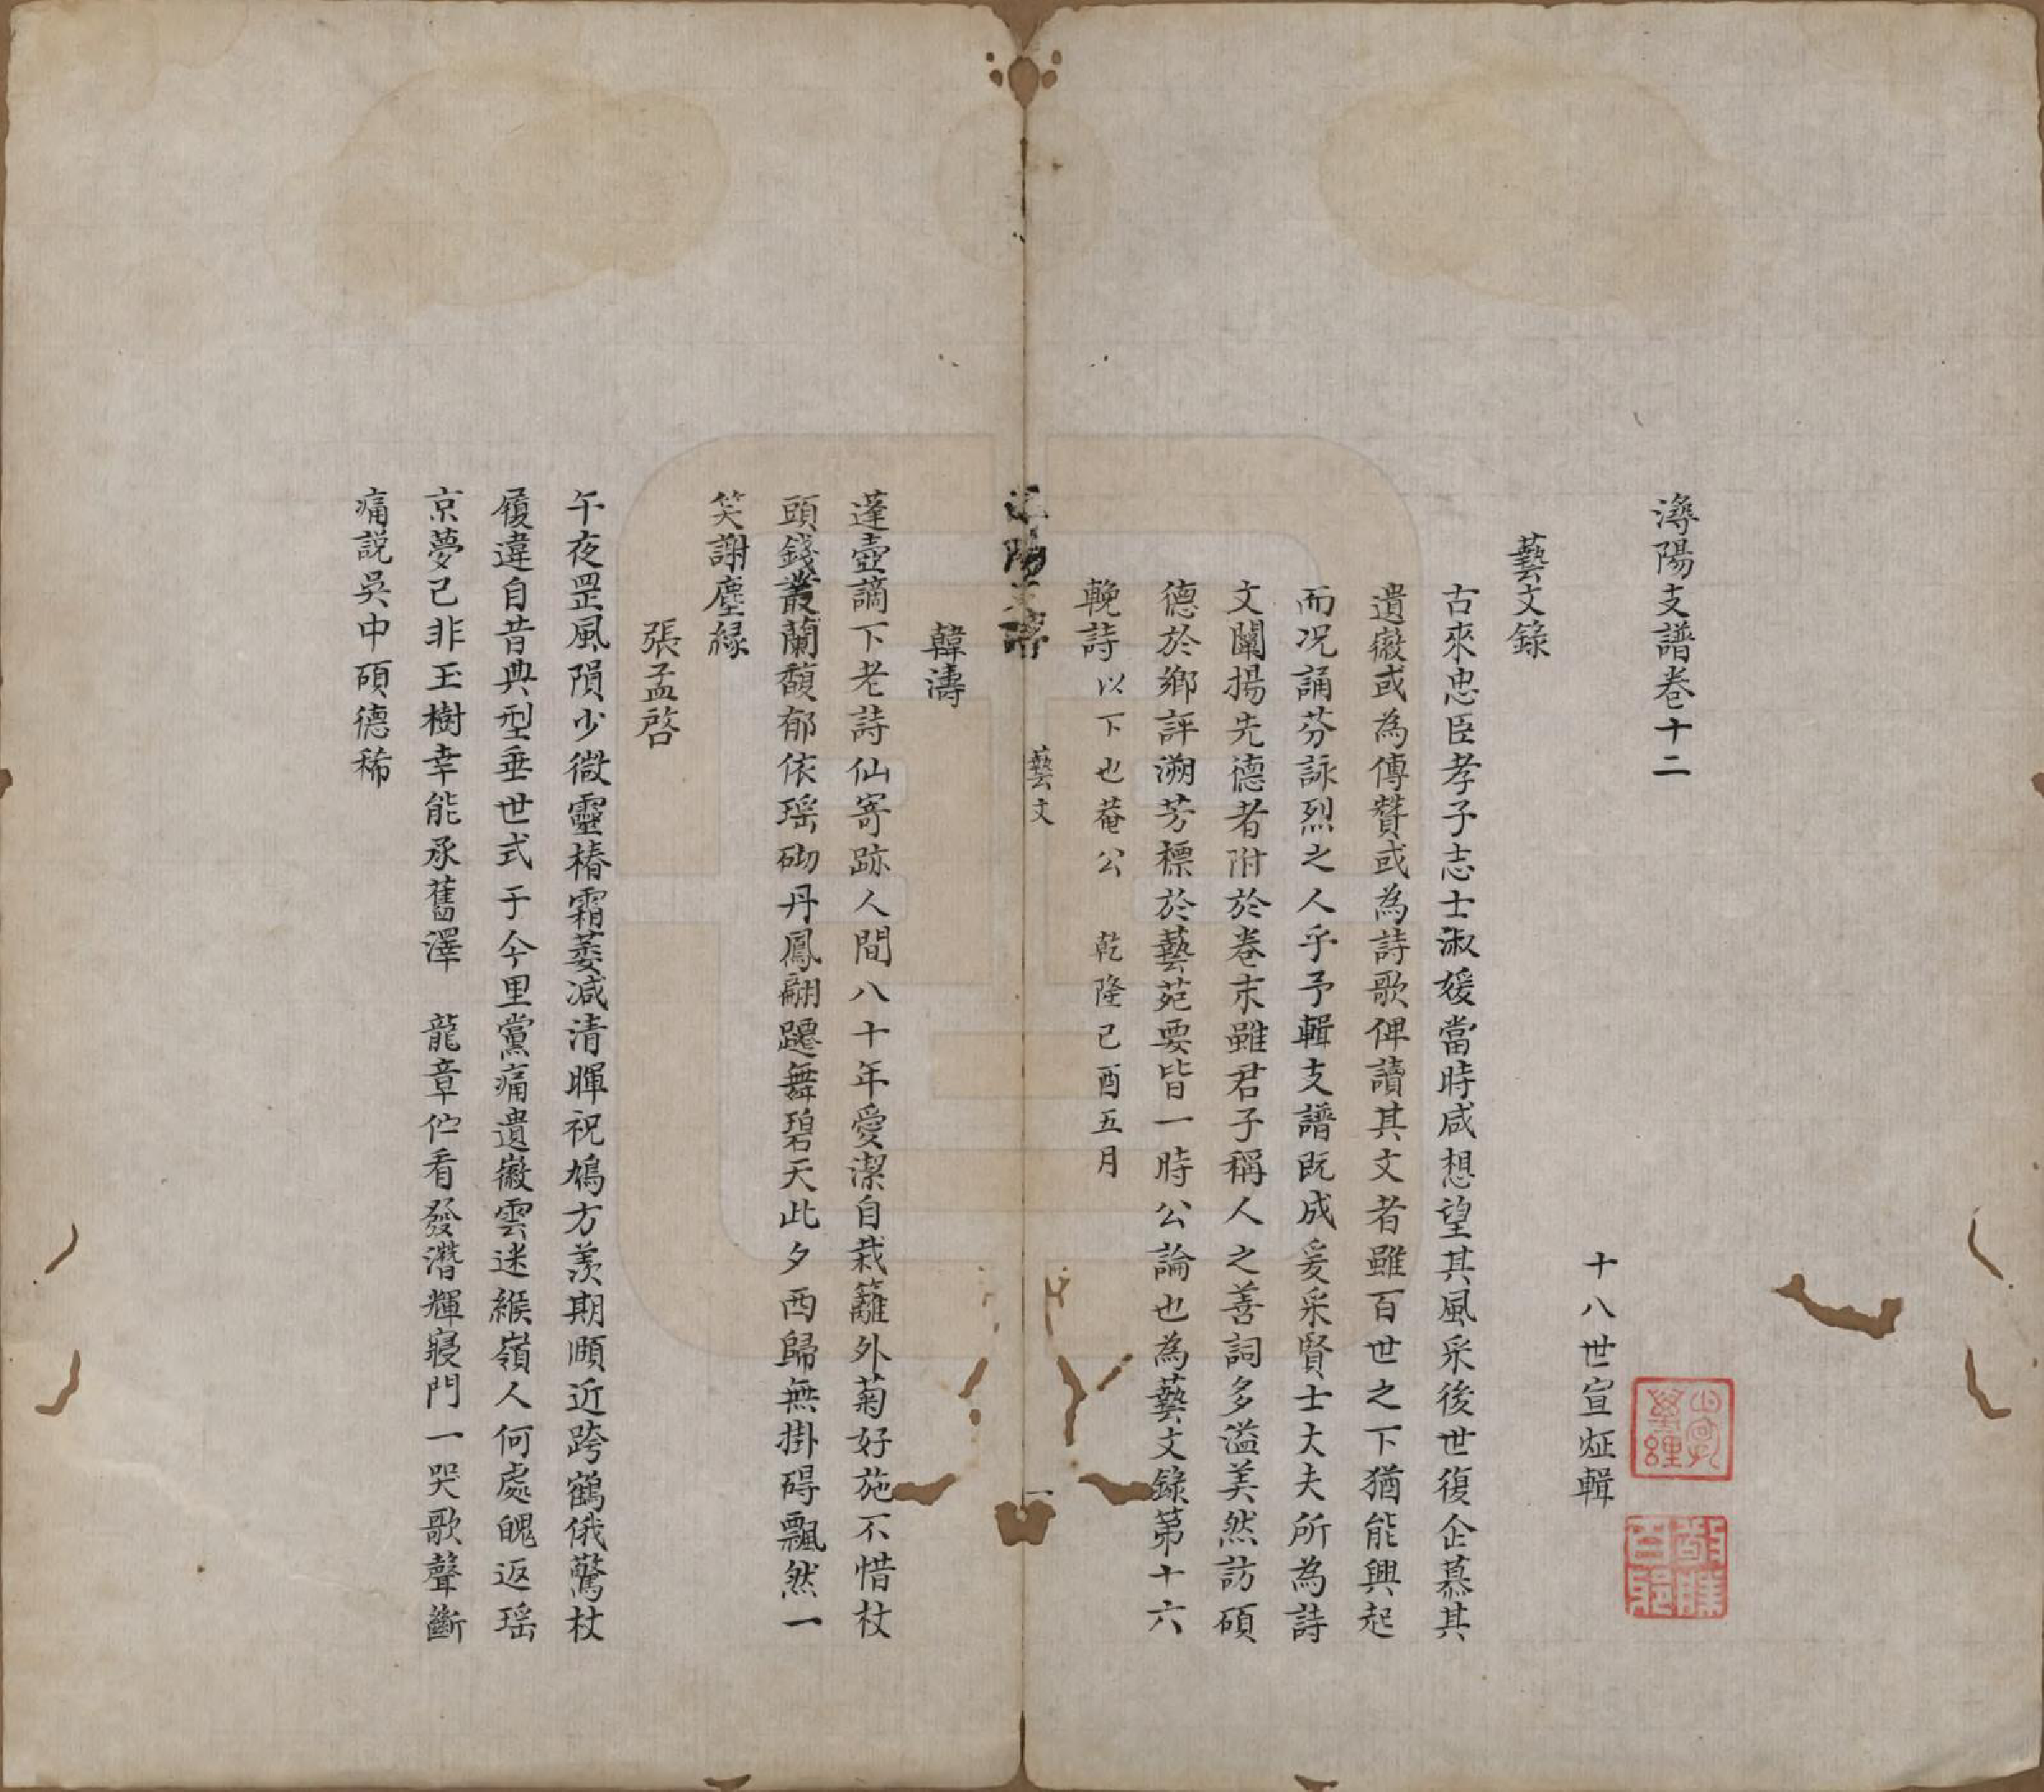 潯陽支譜卷十二
十八世宣烝輯
藝文錄
古來忠臣孝子志士淑媛當時咸想望其風采後世復企慕其
遺徽或為傳贊或為詩歌俾讀其文者雖百世之下猶能興起
而况誦芬詠烈之人乎予輯支譜既成爰采賢士大夫所為詩
文闡揚先德者附於卷末雖君子稱人之善詞多溢美然訪碩
德於鄉評溯芳標於藝苑要皆一時公論也為藝文錄第十六
輓詩以下也菴公 乾隆己酉五月
潯陽支譜 藝文 一
韓濤
蓬壺謫下老詩仙寄跡人間八十年愛潔自栽籬外菊好施不惜杖
頭錢叢蘭馥郁依瑶砌丹鳳翩躚舞碧天此夕西歸無掛碍飄然一
笑謝塵緣
張孟啓
午夜罡風隕少微靈椿霜萎减清暉祝鳩方羨期頤近跨鶴俄驚杖
履違自昔典型垂世式于今里黨痛遺徽雲迷緱嶺人何處魄返瑶
京夢已非玉樹幸能承舊澤 龍章伫看發潛輝寢門一哭歌聲斷
痛説吳中碩德稀